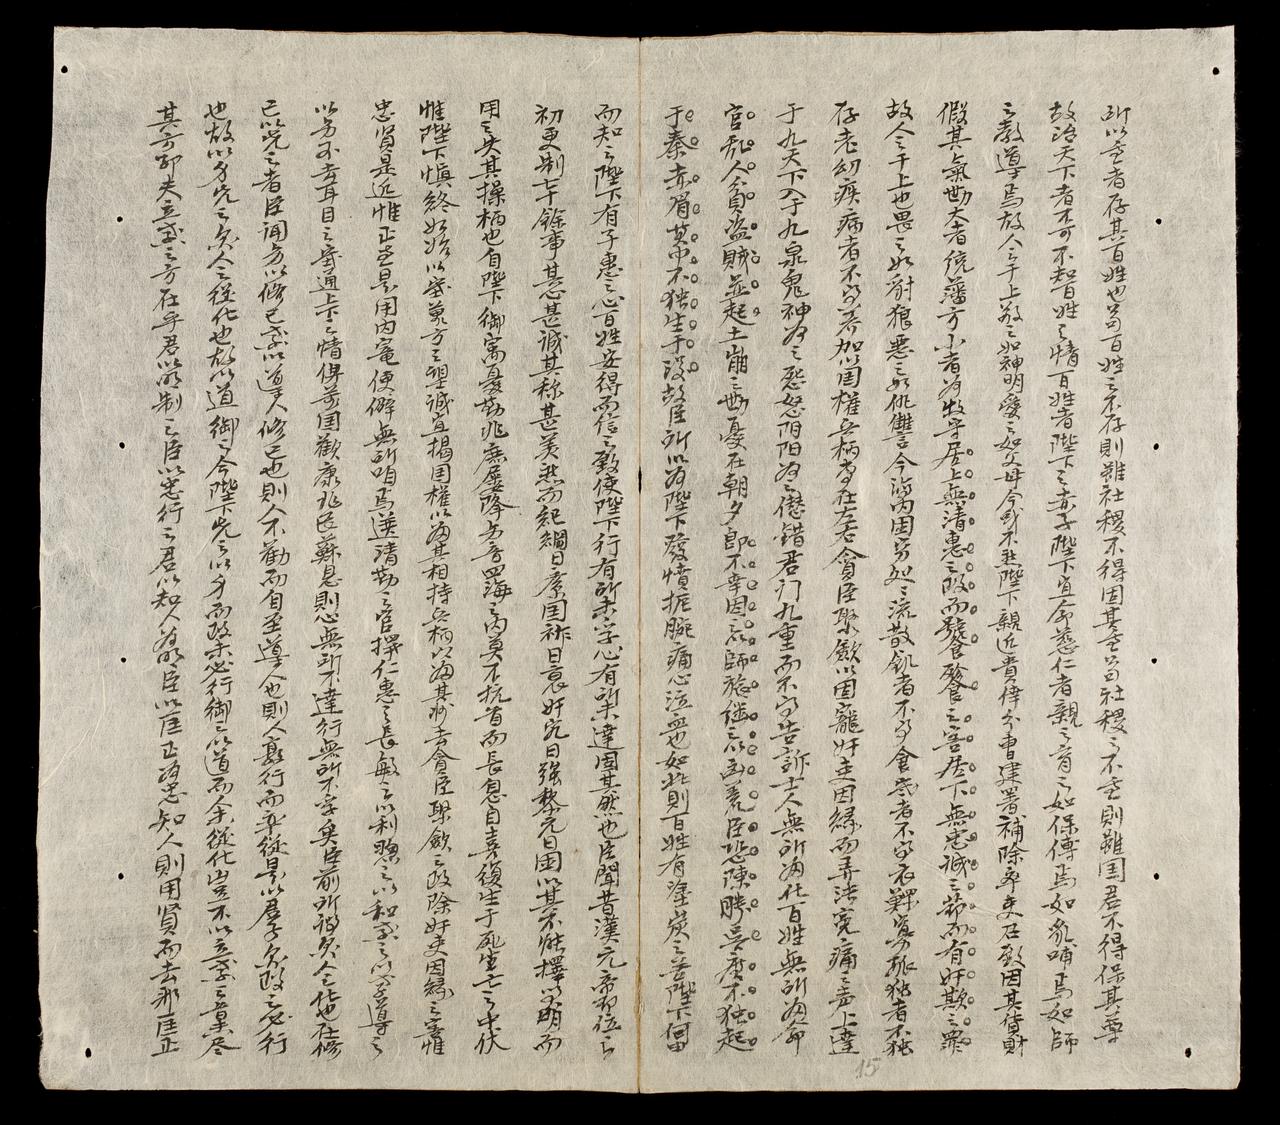 所以重者存其百姓也苟百姓之不存則雖社稷不得固其重苟社稷之不重則雖国君不得保其尊
故治天下者不可不知百姓之情百姓者陛下之赤子陛下宜命慈仁者親之育之如保傅焉如乳哺焉如師
之教導焉故人之于上敬之如神明愛之如父母今或不然陛下親近貴倖分曹建署補除卒吏召致因其貨財
假其氣勢大者統藩方小者为牧守居上無清惠之政而饕餮之害居下無忠誠之節而有奸欺之罪
故人之于上也畏之如豺狼惡之如仇讐今海内困窮処之流散飢者不得食寒者不得衣鰥寡孤独者不得
存老幼疾病者不得养加以国權兵柄专在左右貪臣聚歛以固寵奸吏因緣而弄法寃痛之声上達
于九天下入于九泉鬼神为之怨怒阴阳为之愆錯君门九重而不得告訴士人無所歸化百姓無所歸命
官乱人貧盗賊並起土崩之勢憂在朝夕即不幸因之以師旅継之以凶荒臣恐陳勝吴廣不独起
于秦赤眉黄巾不独生于漢故臣所以为陛下發憤扼腕痛心泣血也如此則百姓有塗炭之苦陛下何由
而知之陛下有子惠之心百姓安得而信之致使陛下行有所未孚心有所未達固其然也臣聞昔漢元帝即位之
初更制七十餘事其心甚诚其称甚美然而紀綱日紊国祚日衰奸宄日强黎元日困以其不能擇賢明而
用之失其操柄也自陛下御寓憂勤兆庶屢降德音四海之内莫不抗首而長息自喜復生于死亡之中伏
惟陛下慎終如始以塞萬方之望誠宜揭国權以歸其相持兵柄以歸其将去貪臣聚歛之政除奸吏因緣之害惟
忠賢是近惟正直是用内寵便僻無所咱焉選清勤之官擇仁惠之長敏之以利煦之以和教之以孝導之
以德不去耳目之塞通上下之情俾萬国歡康兆民蘇息則心無所不達行無所不孚矣臣前所謂欲人之化也在修
己以先之者臣谓德以修己教以導人修己也則人不勸而自至導人也則人敦行而率從是以君子欲政之必行
也故以身先之欲人之從化也故以道御之今陛下先之以身而政未必行御之以道而人未從化豈不以立教之旨未尽
其方耶夫立教之方在乎君以明制之臣以忠行之君以知人为明臣以匡正为忠知人則用賢而去邪匡正
15